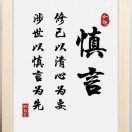 慎言
修己以清心为要
涉世以慎言为先